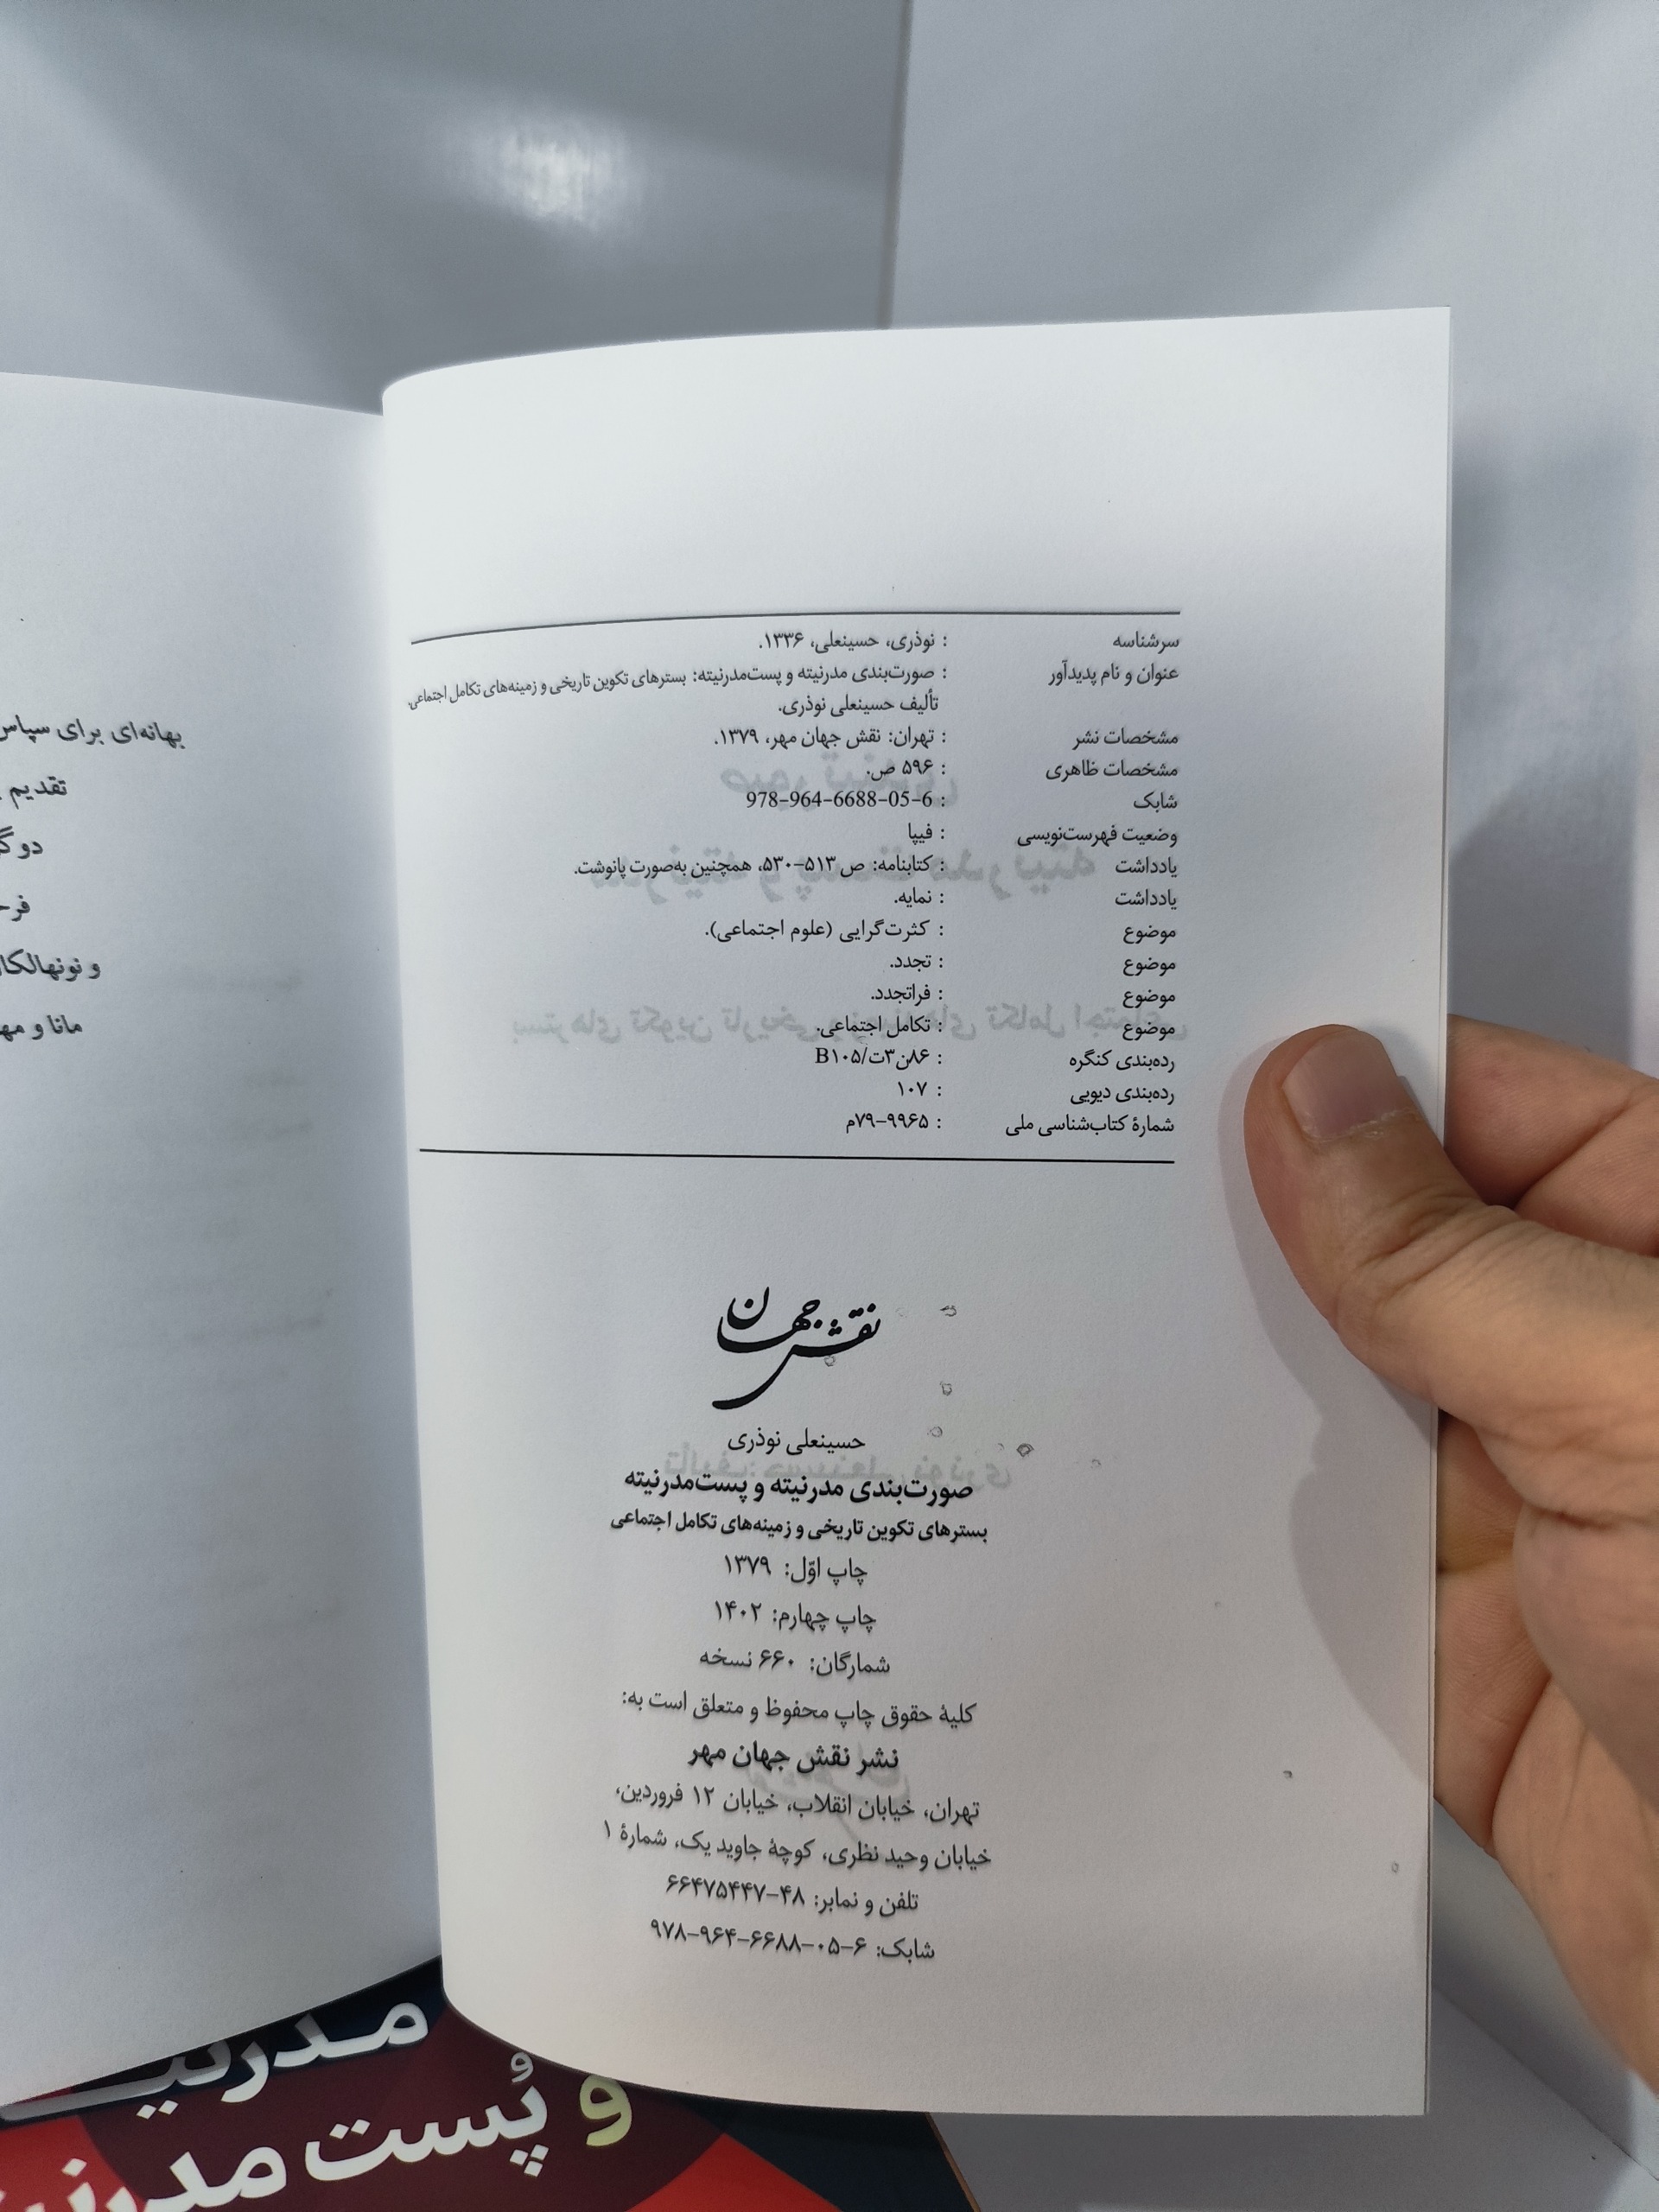 سرشناسه : نوذری، حسینعلی، ۱۳۳۶.
عنوان و نام پدیدآور : صورت‌بندی مدرنیته و پست‌مدرنیته: بسترهای تکوین تاریخی و زمینه‌های تکامل اجتماعی
تألیف حسینعلی نوذری.
مشخصات نشر : تهران: نقش جهان مهر، ۱۳۷۹.
مشخصات ظاهری : ۵۹۶ ص.
شابک : 978-964-6688-05-6
وضعیت فهرست‌نویسی : فیپا
یادداشت : کتابنامه: ص ۵۱۳–۵۳۰، همچنین به‌صورت پانوشت.
یادداشت : نمایه.
موضوع : کثرت‌گرایی (علوم اجتماعی).
موضوع : تجدد.
موضوع : فراتجدد.
موضوع : تکامل اجتماعی.
رده‌بندی کنگره : ۸۶ن۳ت/B۱۰۵
رده‌بندی دیویی : ۱۰۷
شمارهٔ کتاب‌شناسی ملی : ۹۹۶۵–۷۹م
نقش جهان
حسینعلی نوذری
صورت‌بندی مدرنیته و پست‌مدرنیته
بسترهای تکوین تاریخی و زمینه‌های تکامل اجتماعی
چاپ اوّل: ۱۳۷۹
چاپ چهارم: ۱۴۰۲
شمارگان: ۶۶۰ نسخه
کلیهٔ حقوق چاپ محفوظ و متعلق است به:
نشر نقش جهان مهر
تهران، خیابان انقلاب، خیابان ۱۲ فروردین،
خیابان وحید نظری، کوچهٔ جاوید یک، شمارهٔ ۱
تلفن و نمابر: ۴۸–۶۶۴۷۵۴۴۷
شابک: ۶–۰۵–۶۶۸۸–۹۶۴–۹۷۸
بهانه‌ای برای سپاس
تقدیم
دو
و
مانا و
و پُست